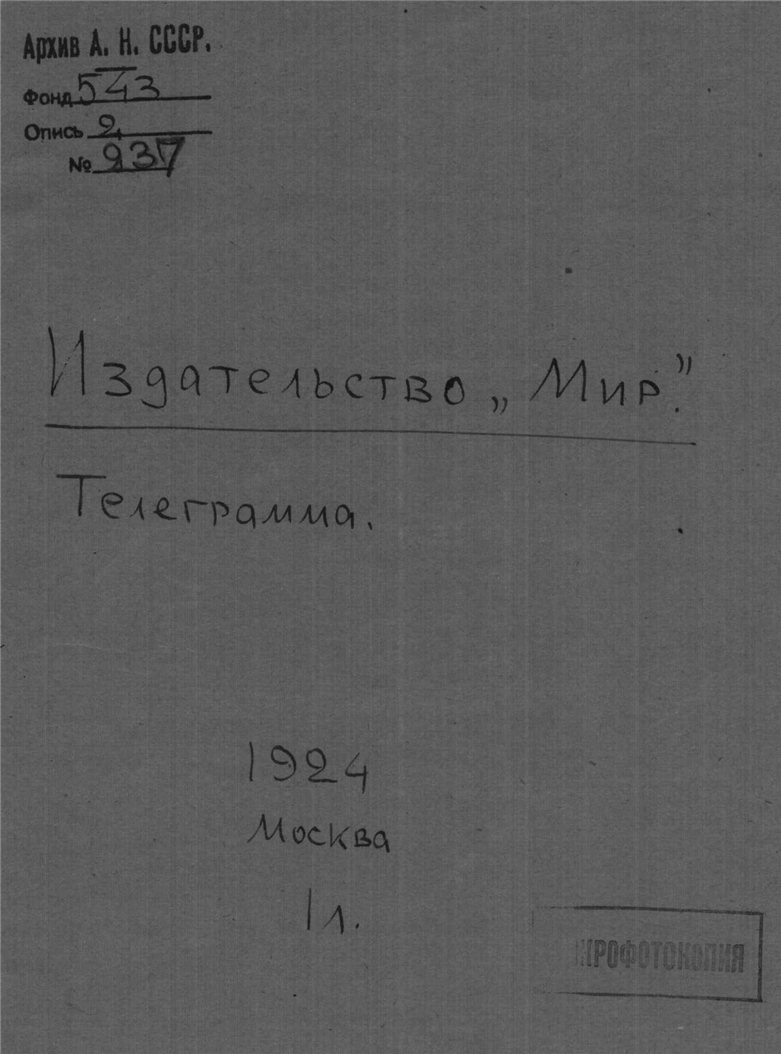 Архив А. Н. СССР.
Фонд 543
Опись 2
№ 237
Издательство „Мир."
Телеграмма.
1924
Москва
1 л.